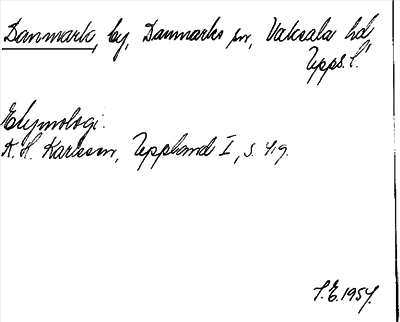 Danmark, by, Danmarks sn, Vaksala hd,
Upps. l.
Etymologi.
K. H. Karlsson, Uppland I, s. 419.
S.E. 1954.